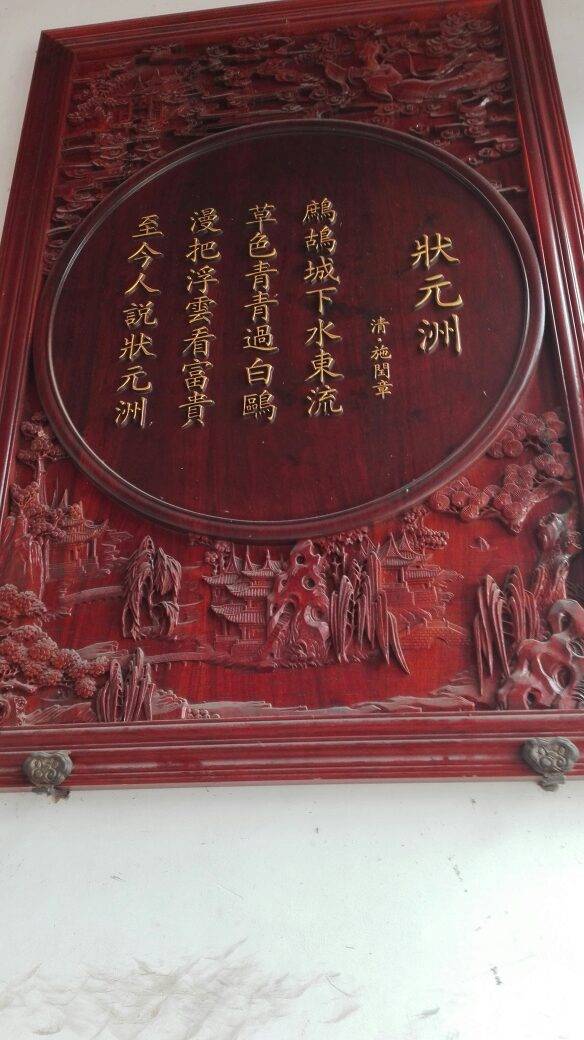 狀元洲
清·施閏章
鷓鴣城下水東流
草色青青過白鷗
漫把浮雲看富貴
至今人説狀元洲